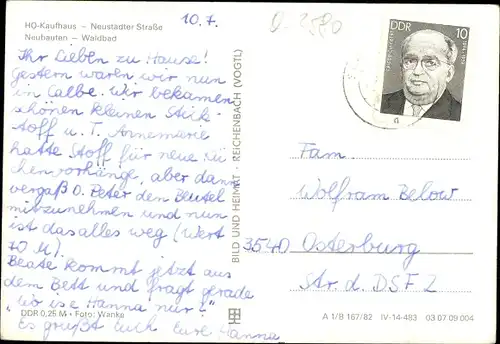 HO-Kaufhaus – Neustädter Straße
Neubauten – Waldbad
10.7.
Ihr Lieben zu Hause!
Gestern waren wir nun
in Calbe. Wir bekamen
schönen kleinen Stick-
stoff u. T. Annemarie
hatte Stoff für neue Kü-
chenvorhänge, aber dann
vergaß O. Peter den Beutel
mitzunehmen und nun
ist das alles weg (Wert
70 M).
Beate kommt jetzt aus
dem Bett und fragt gerade
„wo ist Hanna nur?"
Es grüßt Euch Eure Hanna
DDR 0,25 M • Foto: Wanke
BILD UND HEIMAT · REICHENBACH (VOGTL)
DDR 10
Fam.
Wolfram Below
3540 Osterburg
Str. d. DSF 2
A 1/B 167/82 IV-14-483 03 07 09 004